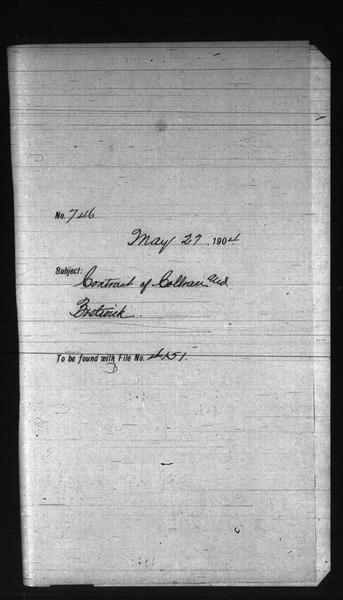 No. 746
May 27, 1904
Subject: Contract of Coltran and
Bostwick.
To be found with File No. 4151.